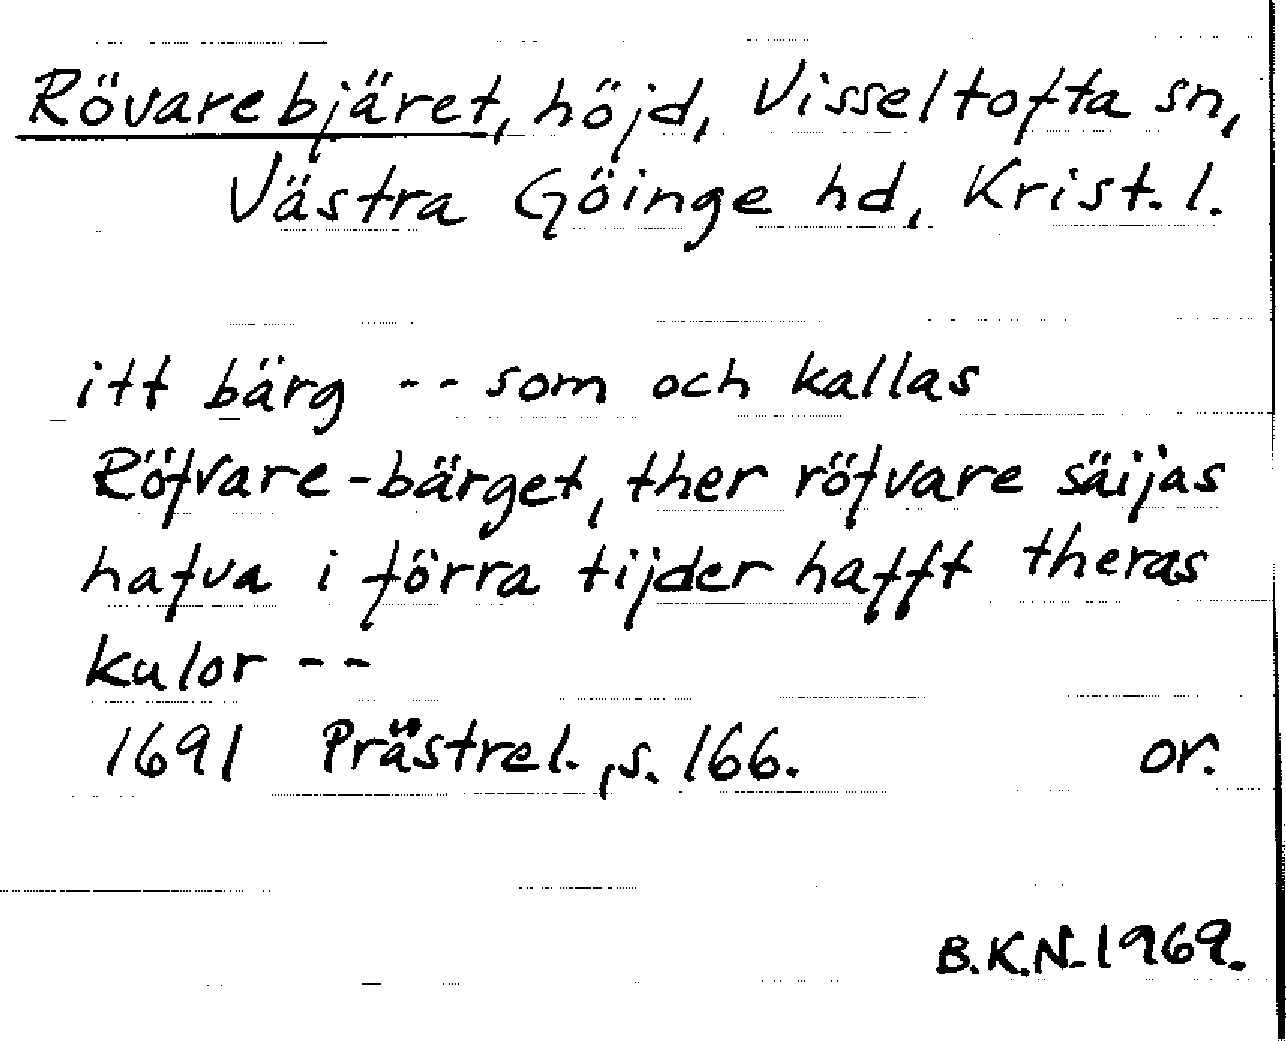 Rövarebjäret, höjd, Visseltofta sn,
Västra Göinge hd, Krist. l.
itt bärg -- som och kallas
Röfvare-bärget, ther röfvare säijas
hafva i förra tijder hafft theras
kulor --
1691 Prästrel., s. 166. or.
B.K.N. 1969.